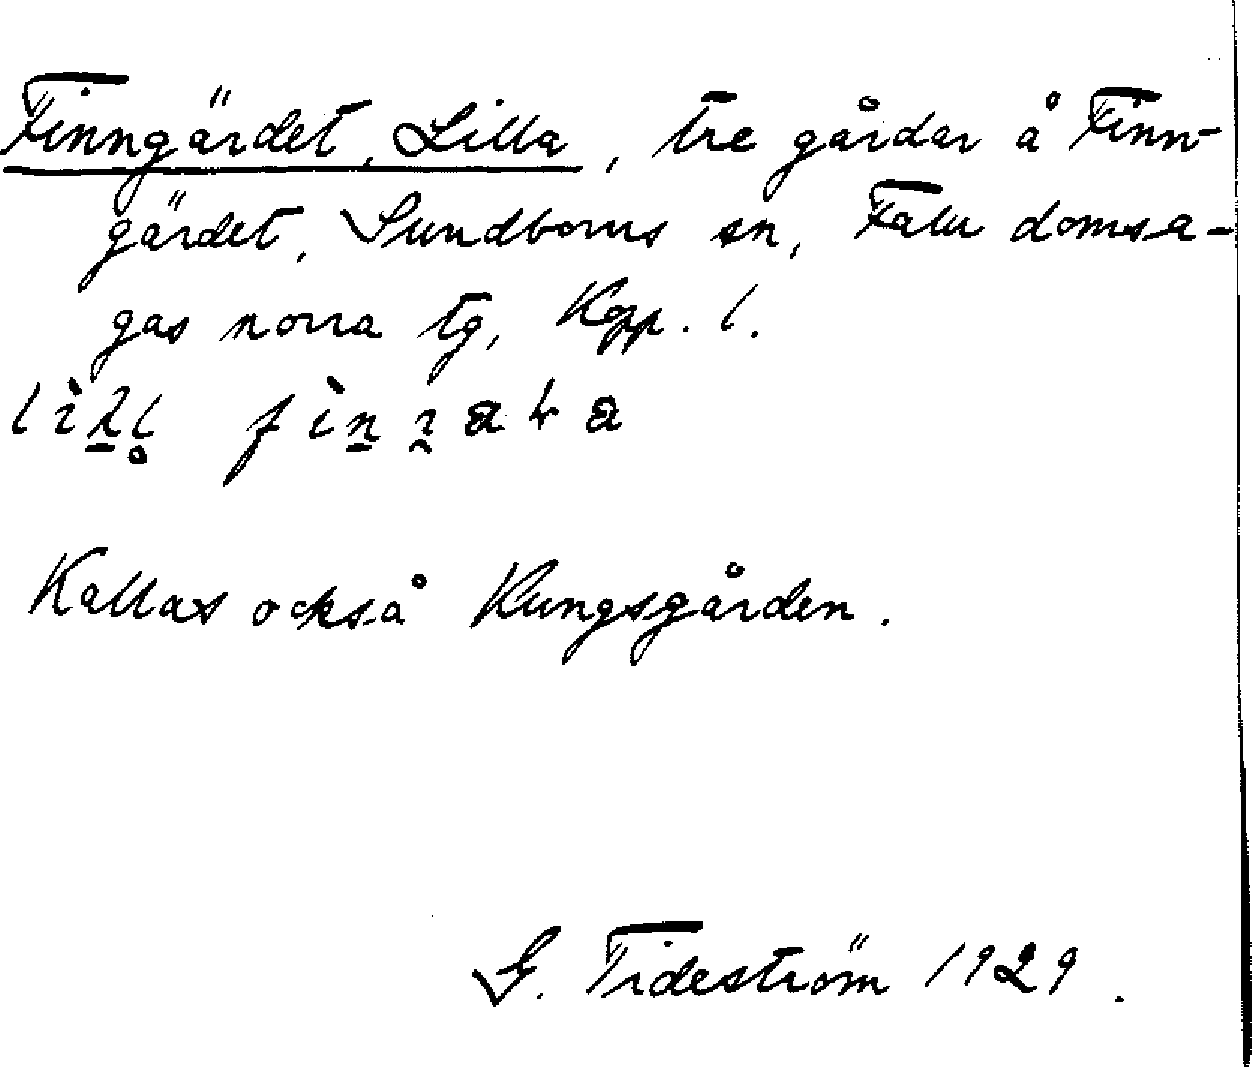 Finngärdet, Lilla, tre gårdar å Finn-
gärdet, Sundborns sn, Falu domsa-
gas norra tg, Kopp. l.
Kallas också Kungsgården.
G. Tideström 1929.